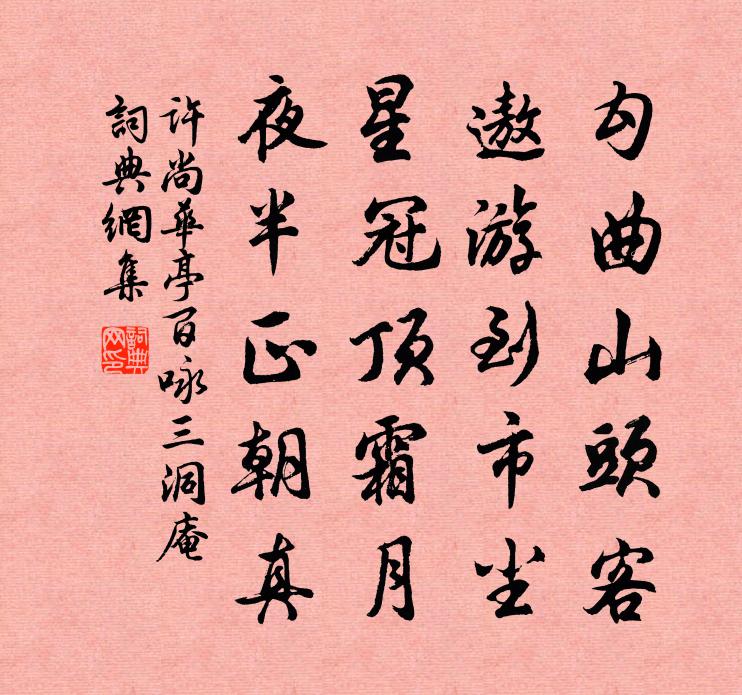 勾曲山頭客
遨游到市尘
星冠顶霜月
夜半正朝真
许尚華亭百咏三洞庵
詞典網集
詞典网印